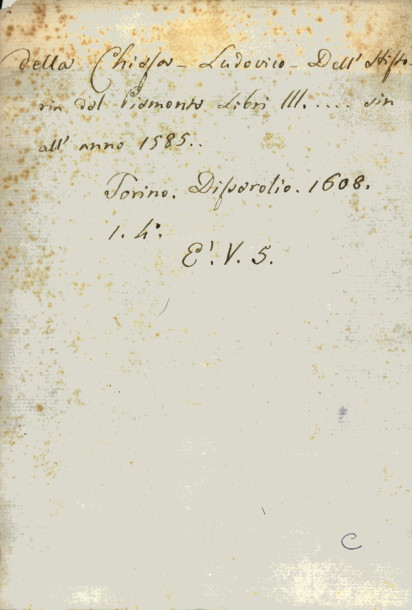 Della Chiesa - Ludovico - Dell' Histo-
ria dal Piemonte Libri III..... sin
all' anno 1585..
Torino. Disserolio. 1608.
1. 4°.
E'. V. 5.
C